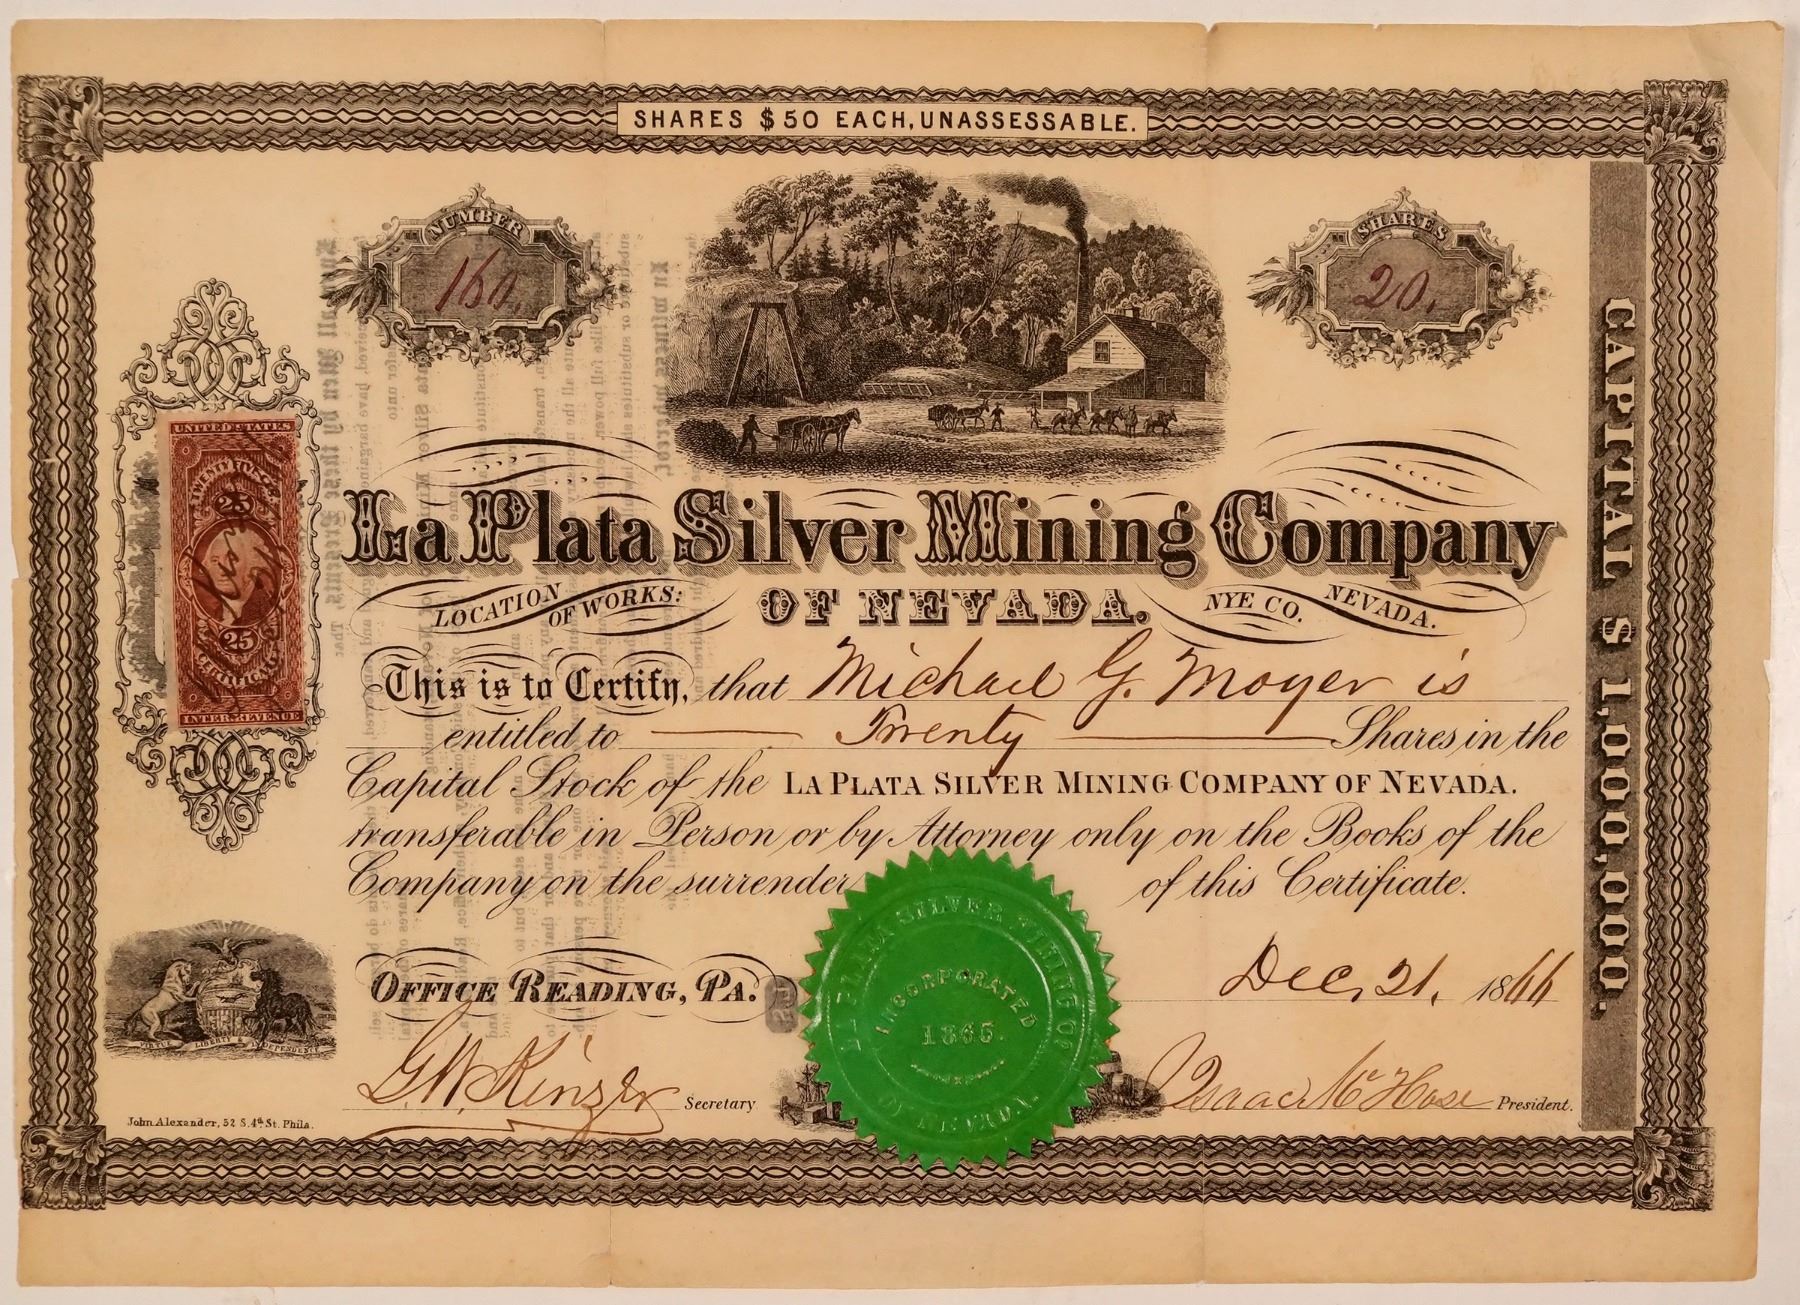 SHARES $50 EACH, UNASSESSABLE.
NUMBER
160.
SHARES
20.
CAPITAL $1,000,000.
UNITED STATES
TWENTY FIVE CTS.
25
25
CERTIFICATE
INTER. REVENUE
La Plata Silver Mining Company
LOCATION OF WORKS:
OF NEVADA.
NYE CO. NEVADA.
This is to Certify, that Michael G. Moyer is
entitled to Twenty Shares in the
Capital Stock of the LA PLATA SILVER MINING COMPANY OF NEVADA.
transferable in Person or by Attorney only on the Books of the
Company on the surrender of this Certificate.
LA PLATA SILVER MINING CO.
INCORPORATED
1865.
OF NEVADA.
VIRTUE LIBERTY & INDEPENDENCE
OFFICE READING, PA.
Dec. 21. 1866
G. W. Kinzer Secretary
Isaac McHose President.
John Alexander, 52 S. 4th St. Phila.